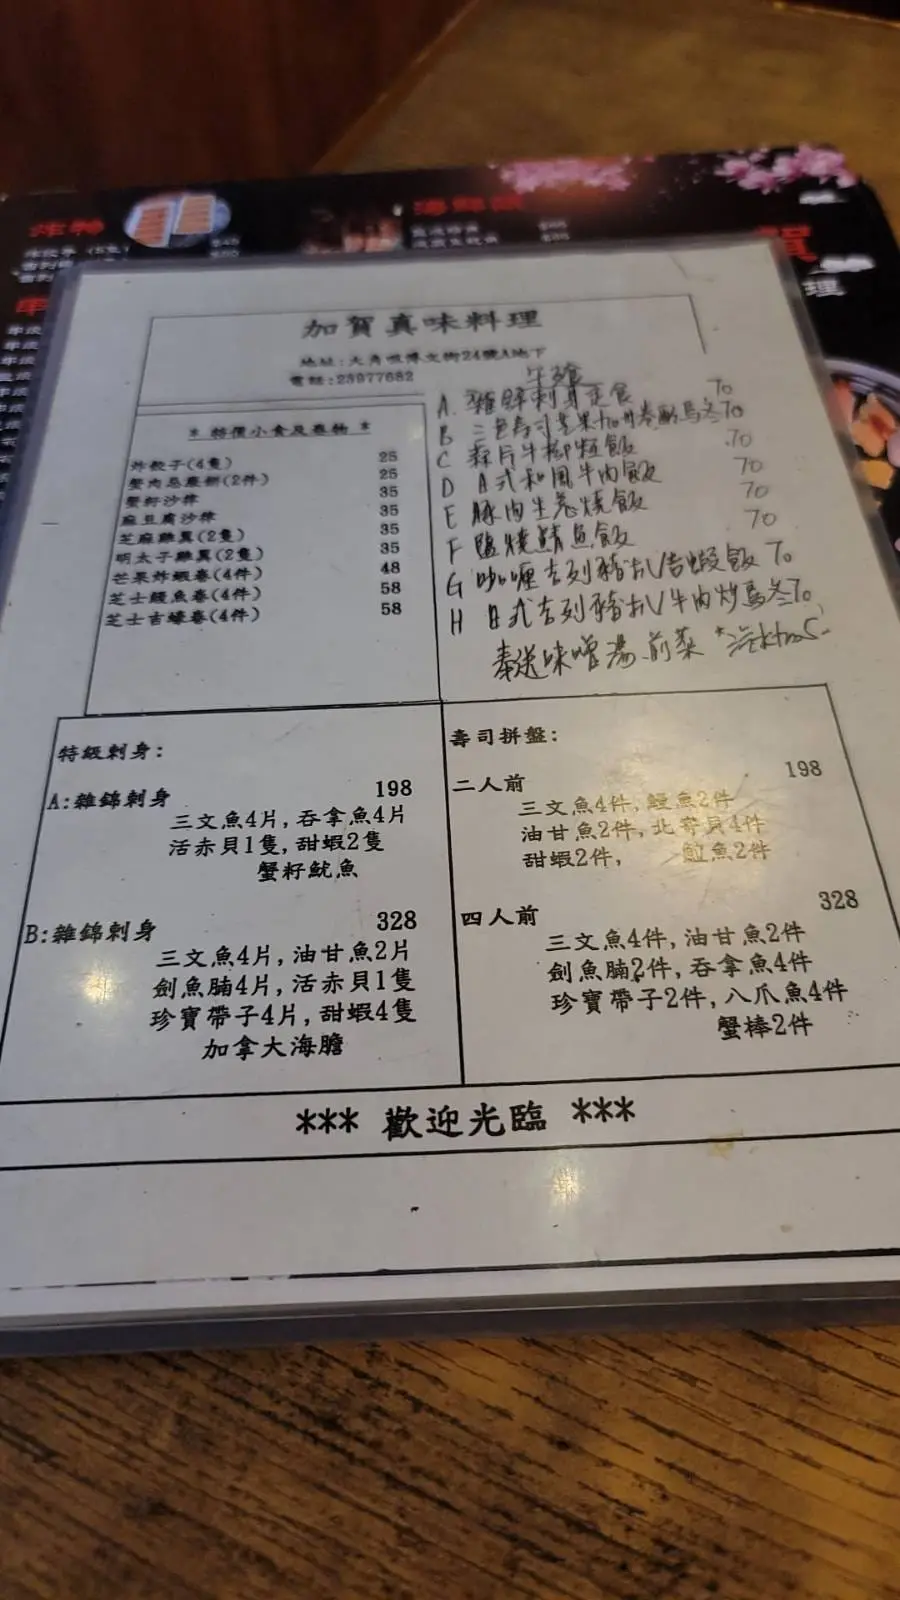 炸物
$45
$50
加賀真味料理
地址:大角咀博文街24號A地下
電話:23977682
* 特價小食及卷物 *
炸餃子(4隻) 25
蟹肉忌廉餅(2件) 25
蟹籽沙律 35
麻豆腐沙律 35
芝麻雞翼(2隻) 35
明太子雞翼(2隻) 35
芒果炸蝦卷(4件) 48
芝士鰻魚卷(4件) 58
芝士吉蠔卷(4件) 58
午飯
A. 雜錦刺身定食 70
B 三色壽司芒果加州卷酥烏冬70
C 蒜片牛柳粒飯 70
D 日式和風牛肉飯 70
E 豚肉生薑燒飯 70
F 鹽燒鯖魚飯 70
G 咖喱吉列豬扒/吉蝦飯 70
H 日式吉列豬扒/牛肉炒烏冬70
奉送味噌湯.前菜
特級刺身:
A:雜錦刺身 198
三文魚4片,吞拿魚4片
活赤貝1隻,甜蝦2隻
蟹籽魷魚
B:雜錦刺身 328
三文魚4片,油甘魚2片
劍魚腩4片,活赤貝1隻
珍寶帶子4片,甜蝦4隻
加拿大海膽
壽司拼盤:
二人前 198
三文魚4件,鰻魚2件
油甘魚2件,北寄貝4件
甜蝦2件, 魚2件
四人前 328
三文魚4件,油甘魚2件
劍魚腩2件,吞拿魚4件
珍寶帶子2件,八爪魚4件
蟹棒2件
*** 歡迎光臨 ***